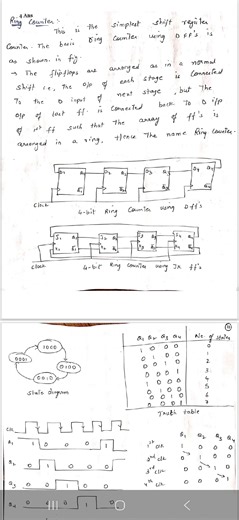 Ring Counter:
This is the simplest shift register
Counter. The basic Ring Counter using D FF's is
as shown in fig
→ The flipflops are arranged as in a normal
shift i.e, the O/p of each stage is connected
To the D input of next stage, but The
O/p of last ff. is connected back To D i/p
of 1st ff such that The array of ff's is
arranged in a ring. Hence The name Ring Counter.
D1 Q1 D2 Q2 D3 Q3 D4 Q4
Clock
4-bit Ring Counter using D ff's
J1 Q1 J2 Q2 J3 Q3 J4 Q4
Clock
4-bit Ring Counter using JK ff's
1000
0001 0100
0010
State diagram
Q1 Q2 Q3 Q4 No. of states
1 0 0 0 0
0 1 0 0 1
0 0 1 0 2
0 0 0 1 3
1 0 0 0 4
0 1 0 0 5
0 0 1 0 6
0 0 0 1 7
Truth table
CLK
Q1 1 0 0 0 1
Q2 0 1 0 0
Q3 0 0 1 0
Q4 0 0 0 1 0
Q1 Q2 Q3 Q4
1st clk 1 0 0 0
2nd clk 0 1 0 0
3rd clk 0 0 1 0
4th clk 0 0 0 1